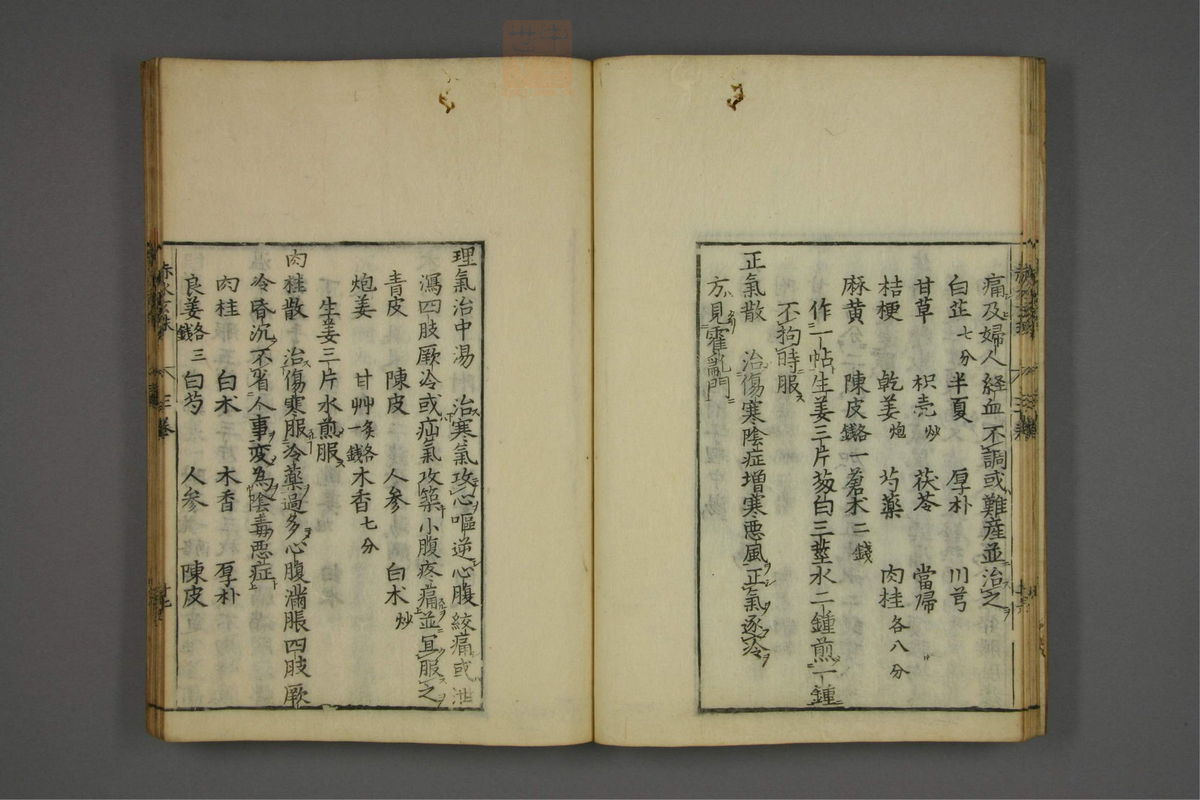 痛及婦人経血不調或難産並治之
白芷七分 半夏 厚朴 川芎
甘草 枳壳炒 茯苓 當帰
桔梗 乾姜炮 芍藥 肉桂各八分
麻黄分二 陳皮各一錢 蒼术二錢
作一帖生姜三片葱白三莖水二鍾煎一鍾
不拘時服
正氣散 治傷寒陰症增寒悪風正氣逐冷
方見霍乱門
理氣治中湯 治寒氣攻心嘔逆心腹絞痛或泄
瀉四肢厥冷或疝氣攻築小腹疼痛並宜服之
青皮 陳皮 人参 白术炒
炮姜 甘艸炙各一錢 木香七分
生姜三片水煎服
肉桂散 治傷寒服冷藥過多心腹滿脹四肢厥
冷昏沉不省人事变為陰毒悪症
肉桂 白术 木香 厚朴
良姜各三錢 白芍 人参 陳皮
三卷